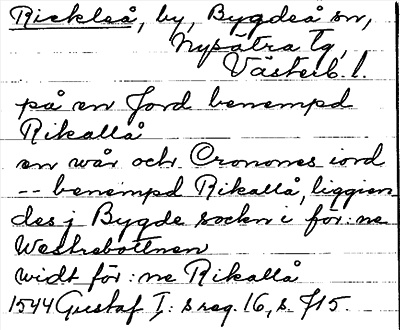 Rickleå, by, Bygdeå sn,
Nysätra Tg,
Västerb. l.
på en Jord benempd
Rikallå
en wår och Cronones iord
-- benempd Rikallå, liggien
des j Bygde sockn i för:ne
Westrebottnen
widt för:ne Rikallå
1544 Gustaf I:s reg. 16, s. 715.